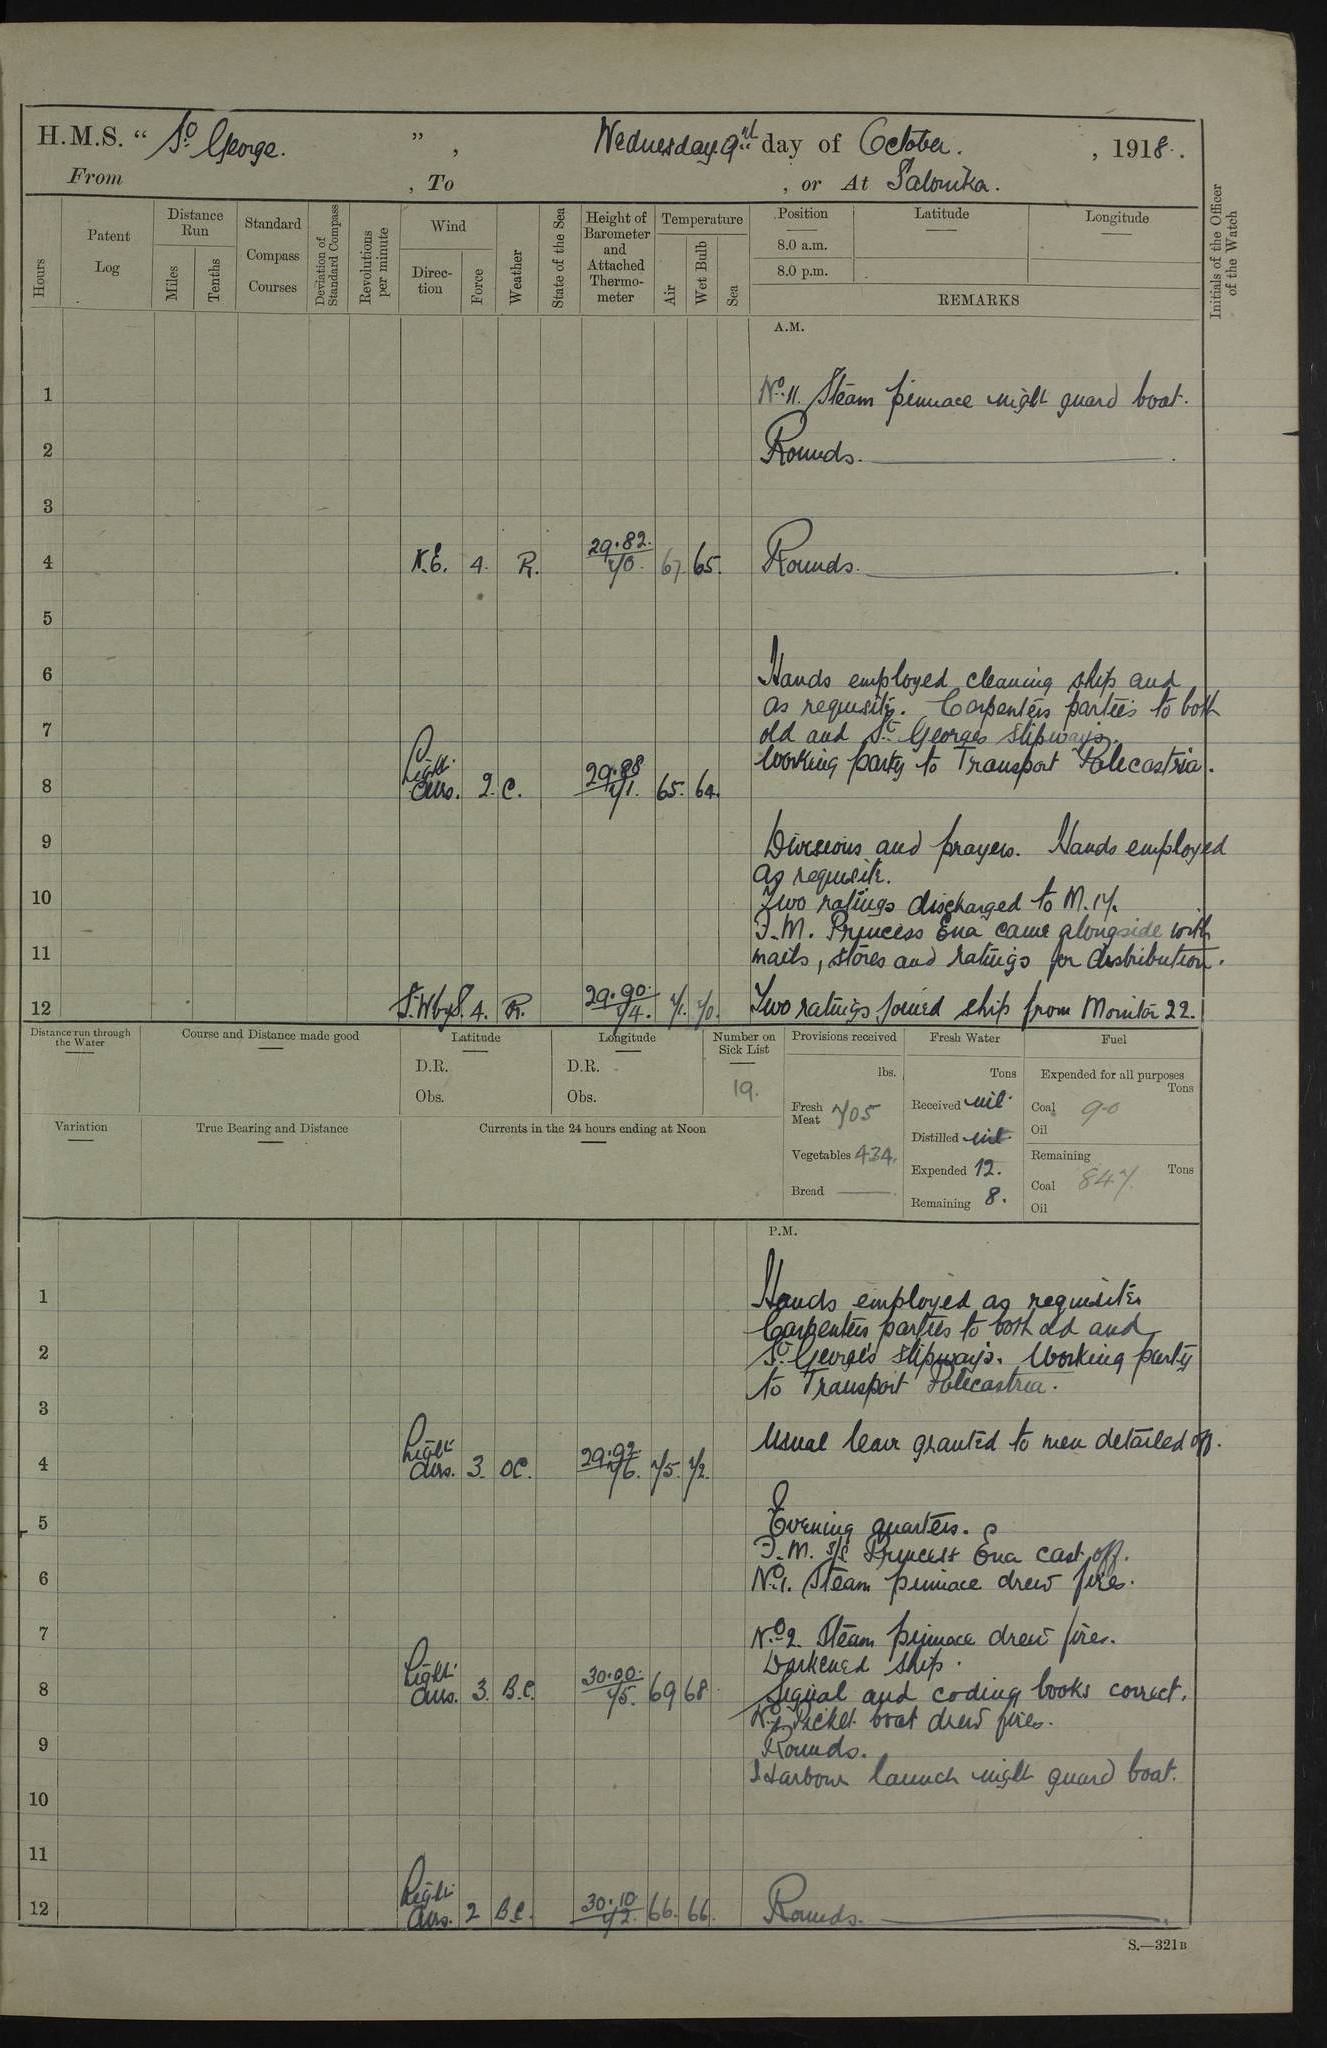 H.M.S. “ St. George. ” , Wednesday 9th day of October. , 1918.
From , To , or At Salonika.
Hours
Patent Log
Distance Run
Miles
Tenths
Standard Compass Courses
Deviation of Standard Compass
Revolutions per minute
Wind
Direction
Force
Weather
State of the Sea
Height of Barometer and Attached Thermometer
Temperature
Air
Wet Bulb
Sea
Position
8.0 a.m.
8.0 p.m.
Latitude
Longitude
REMARKS
Initials of the Officer of the Watch
A.M.
1 No. 11. Steam pinnace night guard boat.
2 Rounds.
3
4 N.E. 4. R. 29.82. 70. 67. 65. Rounds.
5
6 Hands employed cleaning ship and
as requisite. Carpenters parties to both
7 old and St. Georges slipways.
Working party to Transport Palecastria.
8 Light airs. 2. C. 29.88 71. 65. 64.
9 Divisions and prayers. Hands employed
as requisite.
10 Two ratings discharged to M.17.
F.M. Princess Ena came alongside with
11 mails, stores and ratings for distribution.
12 S.W by S. 4. R. 29.90. 74. 71. 70. Two ratings joined ship from Monitor 22.
Distance run through the Water
Course and Distance made good
Latitude
D.R.
Obs.
Longitude
D.R.
Obs.
Number on Sick List
19.
Provisions received
lbs.
Fresh Meat 705
Vegetables 434.
Bread
Fresh Water
Tons
Received nil.
Distilled nil.
Expended 12.
Remaining 8.
Fuel
Expended for all purposes
Tons
Coal 9.0
Oil
Remaining
Tons
Coal 847.
Oil
Variation
True Bearing and Distance
Currents in the 24 hours ending at Noon
P.M.
1 Hands employed as requisite.
Carpenters parties to both old and
2 St. George's slipways. Working party
to Transport Palecastria.
3
Usual leave granted to men detailed off.
4 Light airs. 3. OC. 29.92. 76. 75. 72.
5 Evening quarters.
F.M. S/S Princess Ena cast off.
6 No. 1. Steam pinnace drew fires.
7 No. 2. Steam pinnace drew fires.
Darkened ship.
8 Light airs. 3. B.C. 30.00. 75. 69 68. Signal and coding books correct.
Picket boat drew fires.
9 Rounds.
Harbour launch night guard boat.
10
11
12 Light airs. 2 B.C. 30.10 72. 66. 66. Rounds.
S.—321B